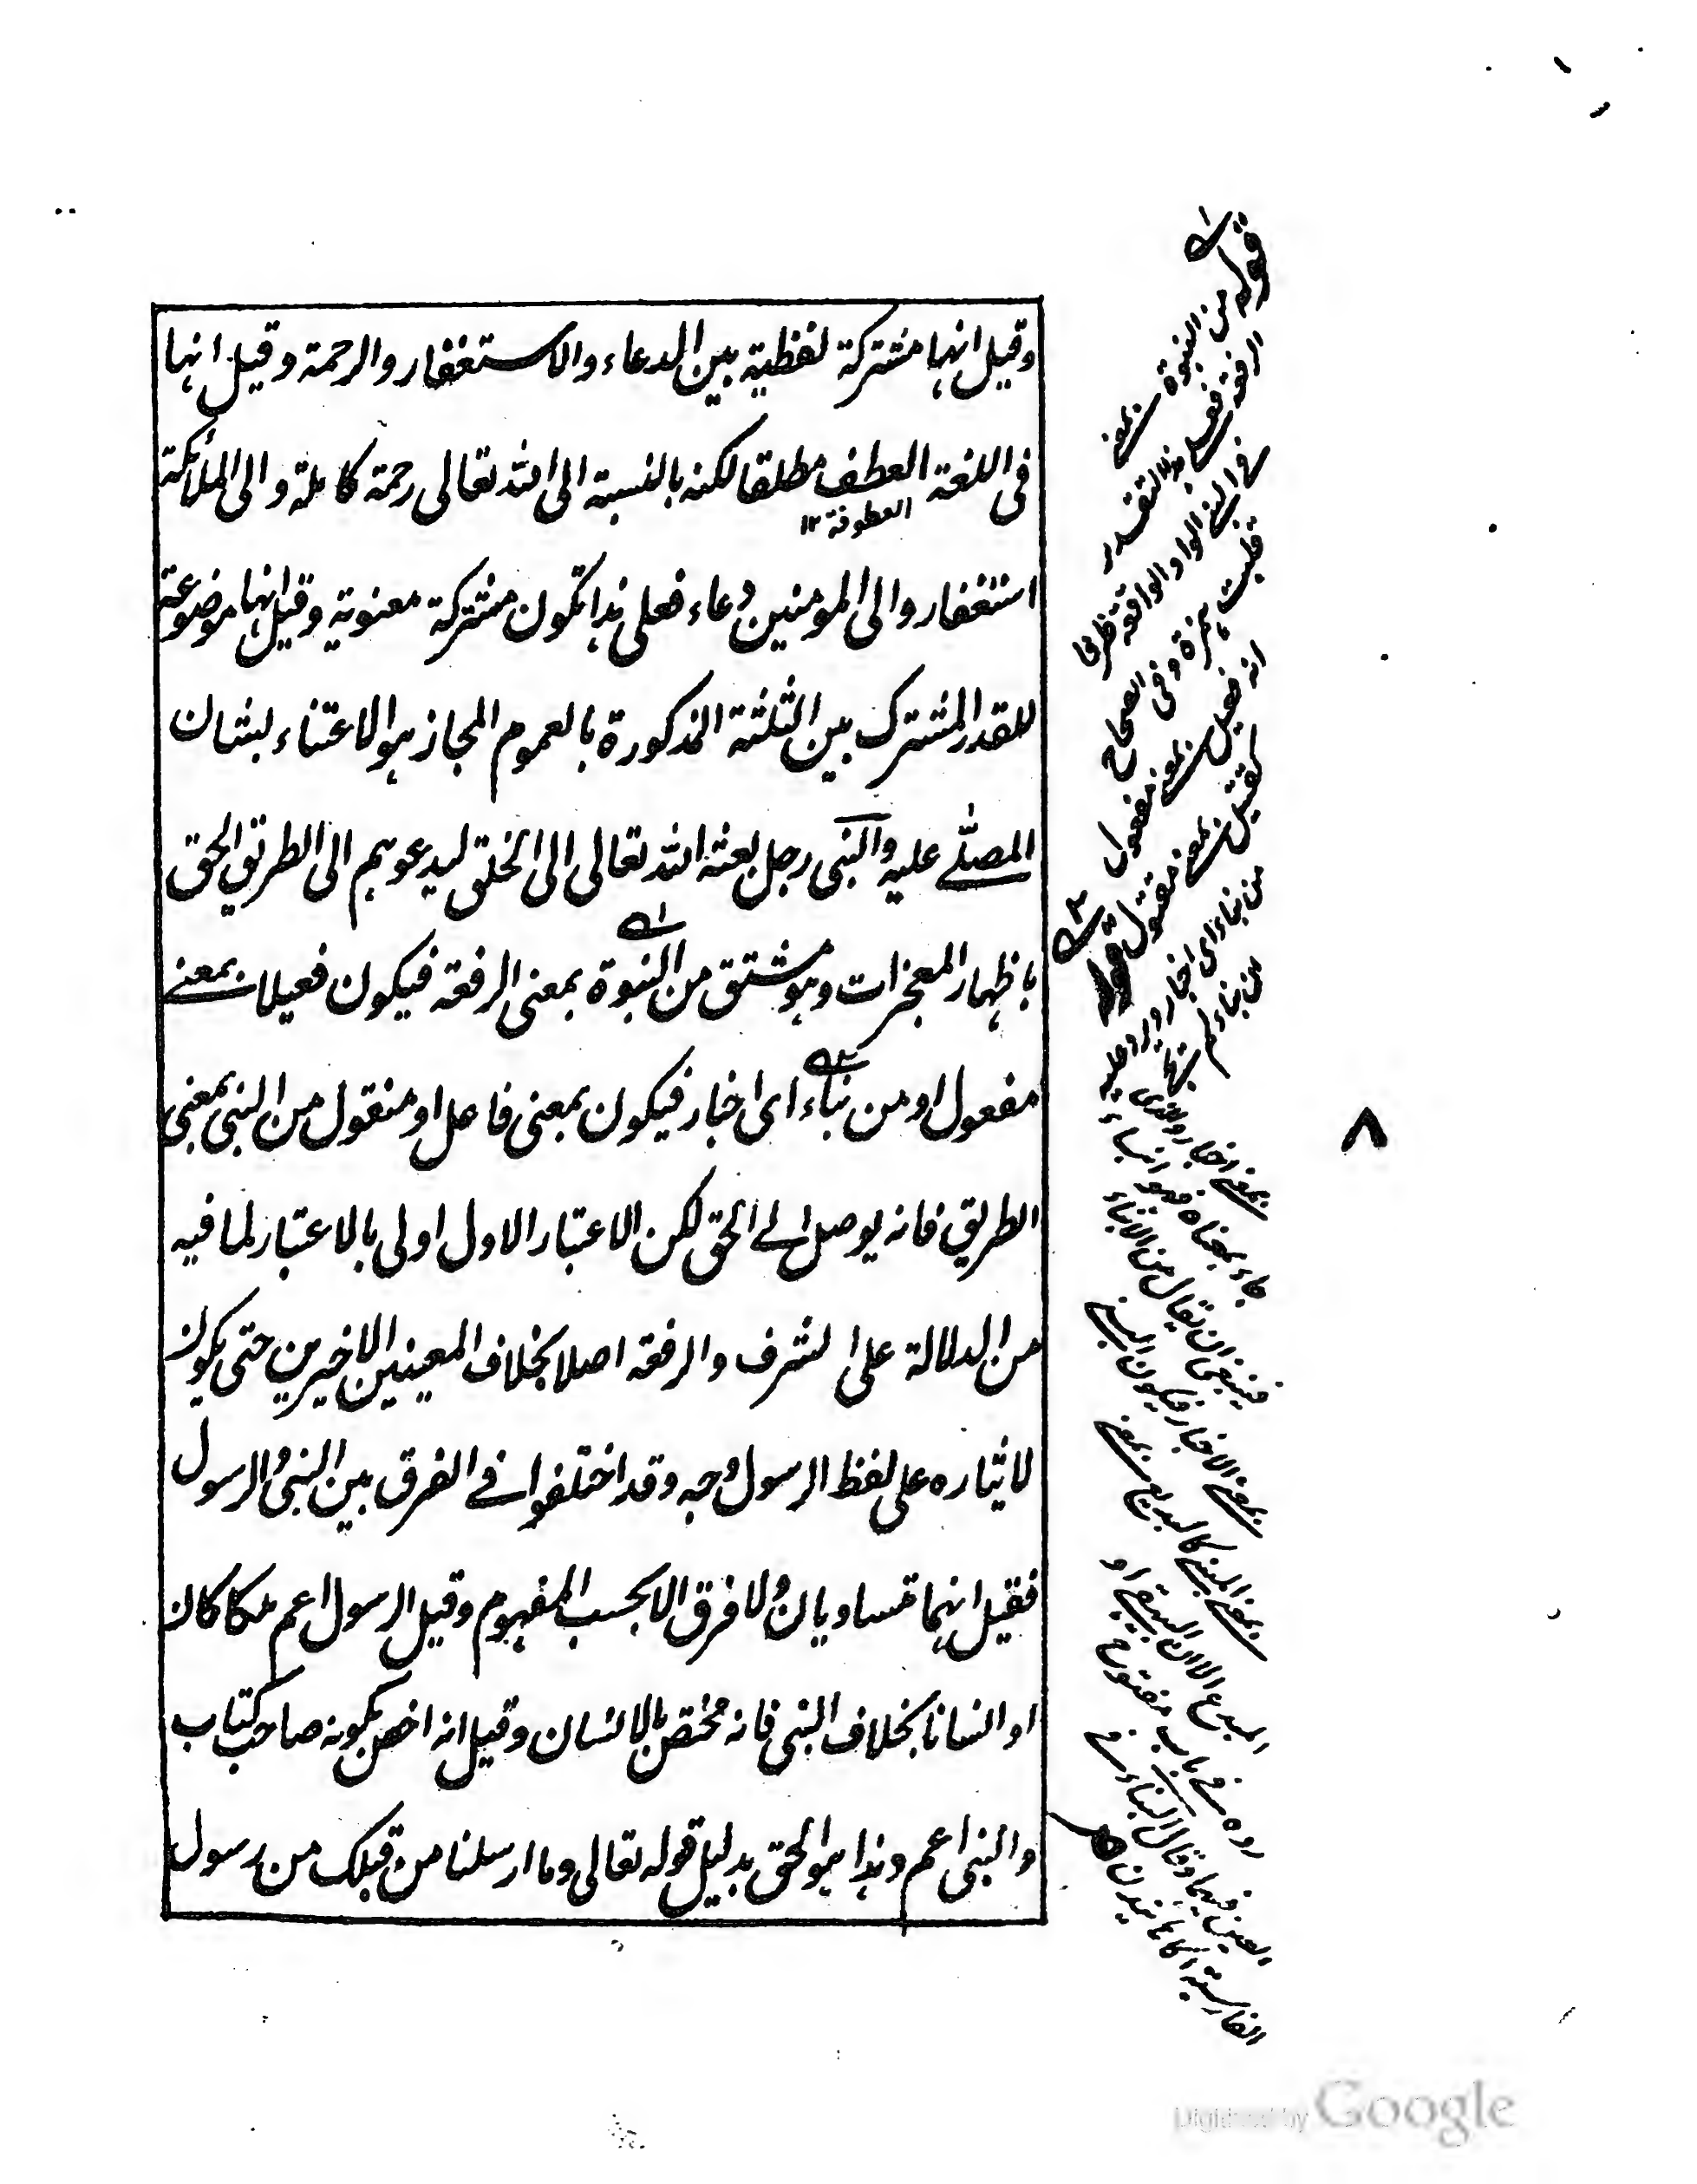 وقيل انها مشتركة لفظية بين الدعاء والاستغفار والرحمة وقيل انها
فى اللغة العطف مطلقا لكنه بالنسبة الى الله تعالى رحمة كاملة والى الملائكة
العطوفة ١٢
استغفار والى المومنين دعاء فعلى هذا تكون مشتركة معنوية وقيل انها موضوعة
للقدر المشترك بين الثلثة المذكورة بالعموم المجاز هو الاعتناء بشان
المصلے عليه والنبى رجل بعثه الله تعالى الى الخلق ليدعوهم الى الطريق الحق
باظهار المعجزات وهو مشتق من النبوة بمعنى الرفعة فيكون فعيلا بمعنے
مفعول او من نباء اى اخبار فيكون بمعنى فاعل او منقول من النبى بمعنى
الطريق فانه يوصل الے الحق لكن الاعتبار الاول اولى بالاعتبار لما فيه
من الدلالة على الشرف والرفعة اصلا بخلاف المعينين الاخيرين حتى يكون
لايثاره على لفظ الرسول وجه وقد اختلفوا فے الفرق بين النبى والرسول
فقيل انهما متساويان ولا فرق الا بحسب المفهوم وقيل الرسول اعم ملكا كان
او انسانا بخلاف النبى فانه مختص بالانسان وقيل انه اخص بكونه صاحب كتاب
والنبى اعم وهذا هو الحق بدليل قوله تعالى وما ارسلنا من قبلك من رسول
قوله من النبوة بمعنے
الرفعة فعلے هذا التقدير
فى النبى الواو الواقعة ظرفا
قلبت همزة وفى الصحاح
انه فعيل بمعنے مفعول
كقتيل بمعنے مقتول قوله
من نباء اى اخبار ويرد عليه
من نباء لم
بمعنے اخبار والذى
جاء بمعناه هو انباء
فينبغى ان يقال من الانباء
بمعنے الاخبار فيكون النبے
بمعنے المنبے كالبديع بمعنے
المبدع الا ان
٨